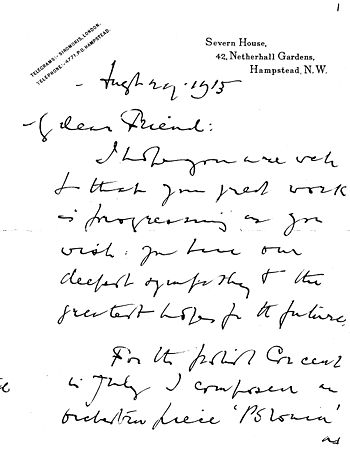 1
TELEGRAMS:- SINGMONTE, LONDON.
TELEPHONE:- 4771 P.O. HAMPSTEAD.
Severn House,
42, Netherhall Gardens,
Hampstead, N.W.
29. 1915
dear Friend:
I hope you are well
& that your great work
is progressing as you
wish: you have our
deepest sympathy & the
greatest hopes for the future.
For the Polish Concert
in July I composed an
orchestral piece 'Polonia'